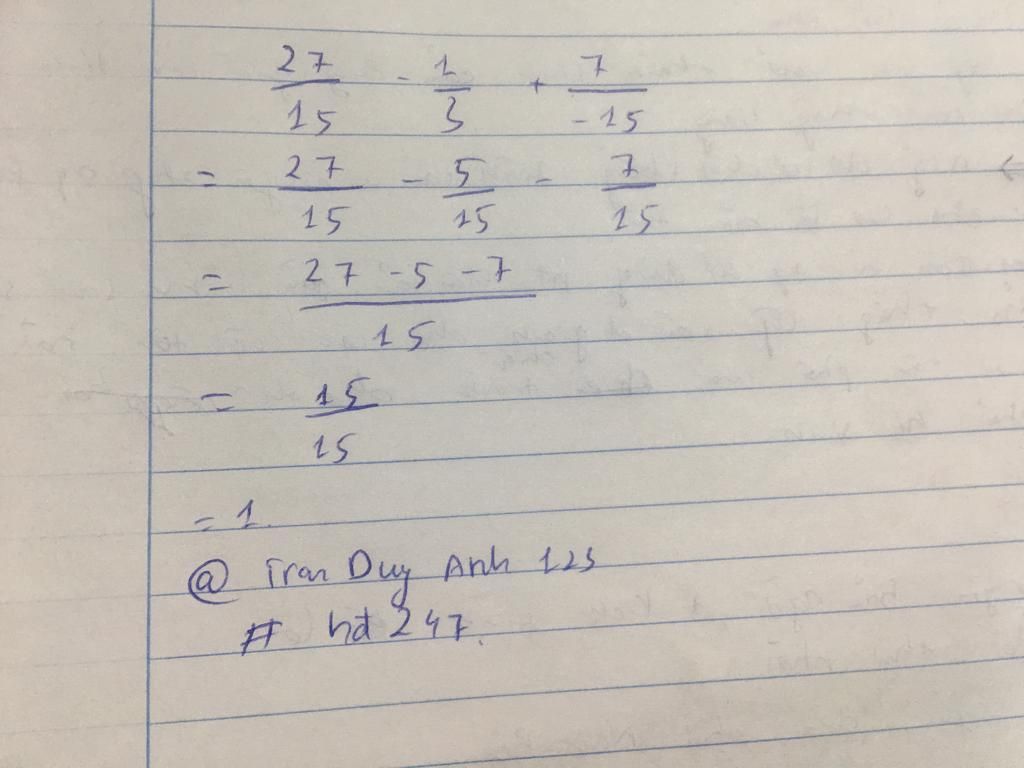 27/15 - 1/3 + 7/-15
= 27/15 - 5/15 - 7/15
= 27 - 5 - 7 / 15
= 15/15
= 1.
@ Tran Duy Anh 123
# hd 247.